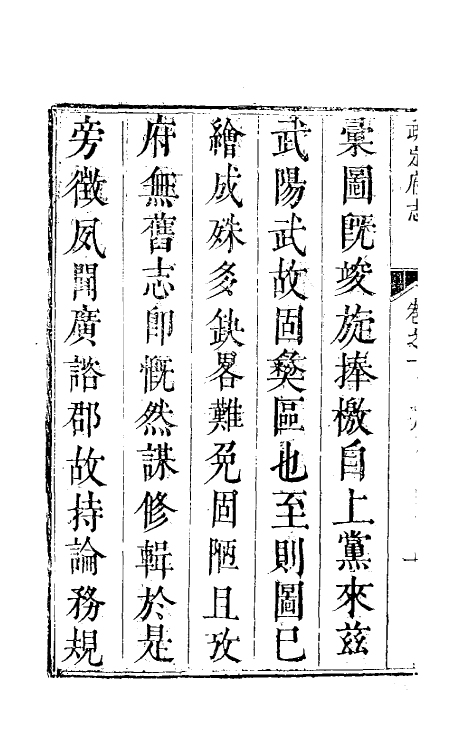 武定府志
卷之一
彙圖旣竣旋捧檄自上黨來兹
武陽武故固㷠區也至則圖已
繪成殊多缺畧難免固陋且攷
府無舊志卽慨然謀修輯於是
旁徵夙聞廣諮郡故持論務規